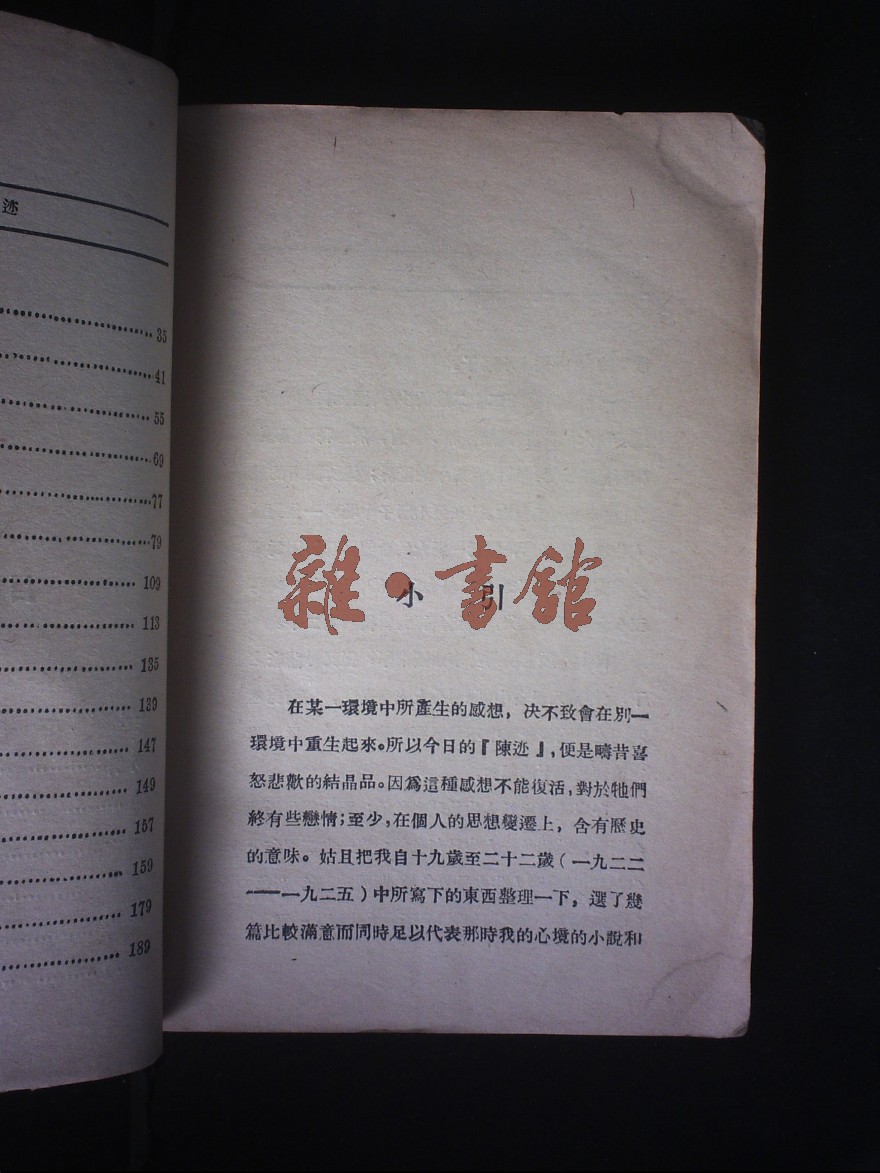 迹
35
41
55
69
77
79
109
113
135
139
147
149
157
159
179
189
雜•書館
小引
在某一環境中所產生的感想，决不致會在別一
環境中重生起來。所以今日的『陳迹』，便是疇昔喜
怒悲歡的結晶品。因爲這種感想不能復活，對於牠們
終有些戀情；至少，在個人的思想變遷上，含有歷史
的意味。姑且把我自十九歲至二十二歲（一九二二
——一九二五）中所寫下的東西整理一下，選了幾
篇比較滿意而同時足以代表那時我的心境的小說和